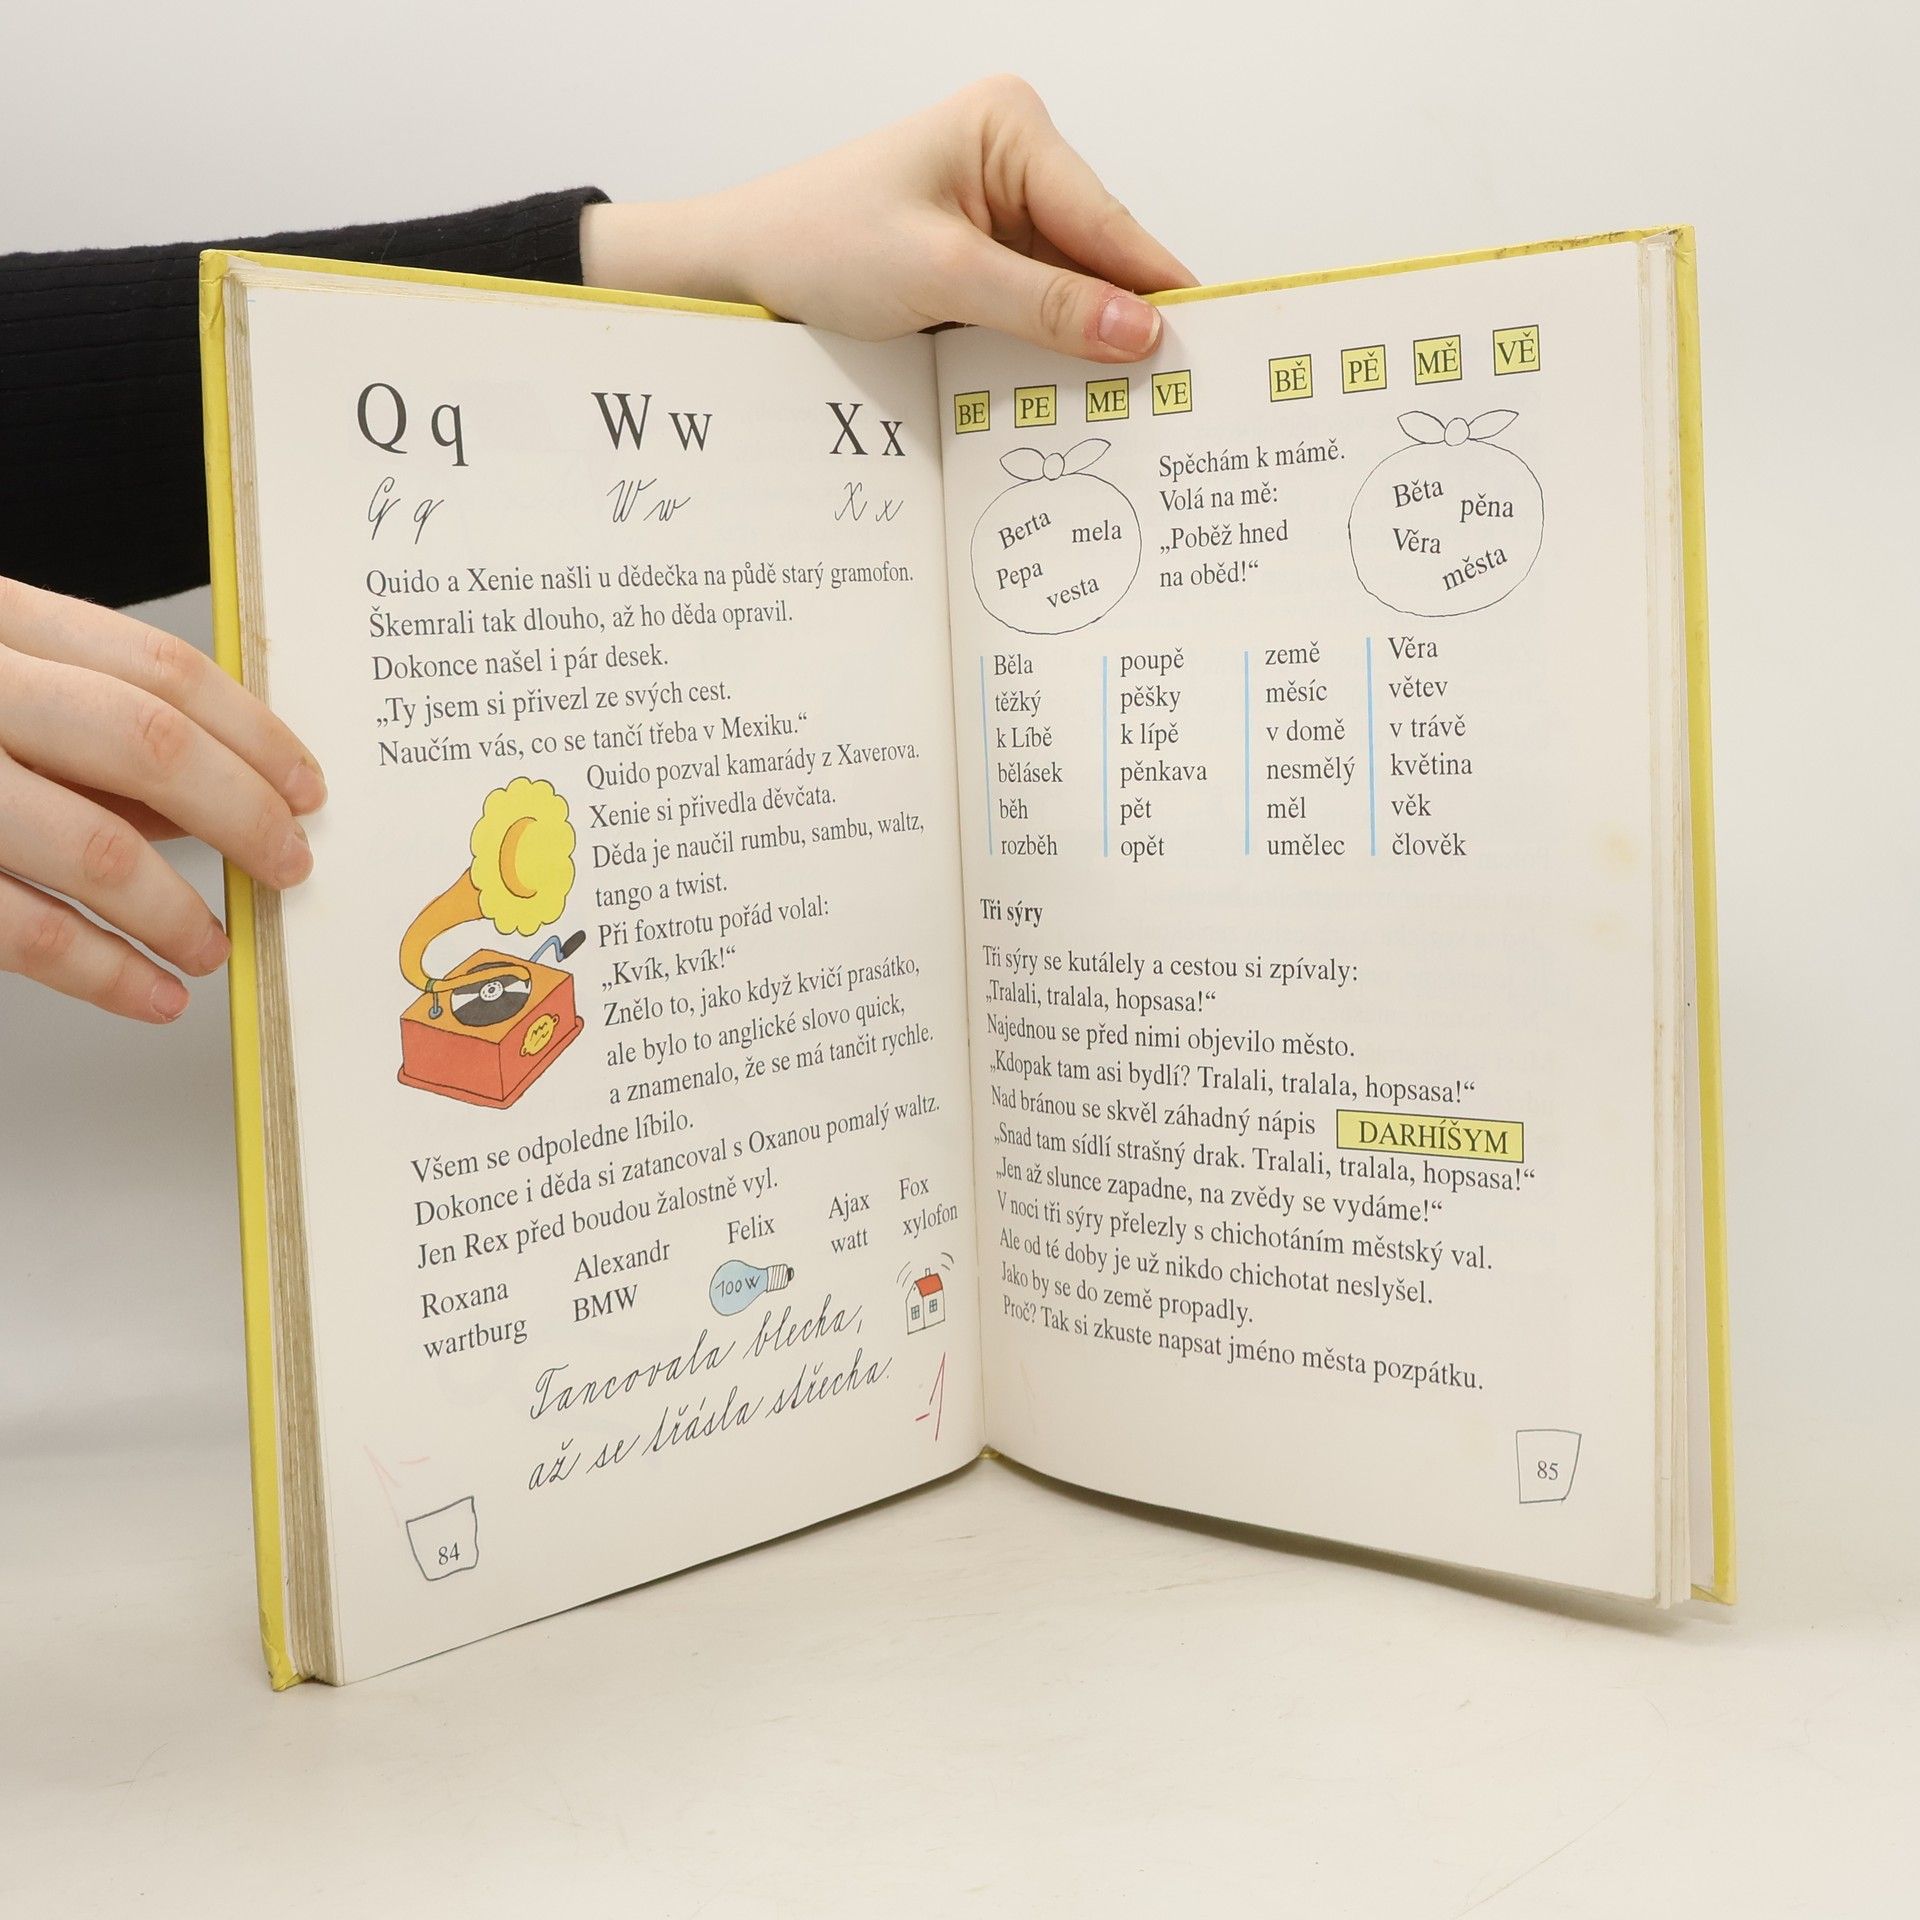 Q q W w X x
Q q W w X x
Quido a Xenie našli u dědečka na půdě starý gramofon.
Škemrali tak dlouho, až ho děda opravil.
Dokonce našel i pár desek.
„Ty jsem si přivezl ze svých cest.
Naučím vás, co se tančí třeba v Mexiku.“
Quido pozval kamarády z Xaverova.
Xenie si přivedla děvčata.
Děda je naučil rumbu, sambu, waltz,
tango a twist.
Při foxtrotu pořád volal:
„Kvík, kvík!“
Znělo to, jako když kvičí prasátko,
ale bylo to anglické slovo quick,
a znamenalo, že se má tančit rychle.
Všem se odpoledne líbilo.
Dokonce i děda si zatancoval s Oxanou pomalý waltz.
Jen Rex před boudou žalostně vyl.
Roxana Alexandr Felix Ajax Fox
wartburg BMW 100 W watt xylofon
Tancovala blecha,
až se třásla střecha.
-1
1-
84
BE PE ME VE BĚ PĚ MĚ VĚ
Berta mela
Pepa vesta
Spěchám k mámě.
Volá na mě:
„Poběž hned
na oběd!“
Běta pěna
Věra města
Běla poupě země Věra
těžký pěšky měsíc větev
k Líbě k lípě v domě v trávě
bělásek pěnkava nesmělý květina
běh pět měl věk
rozběh opět umělec člověk
Tři sýry
Tři sýry se kutálely a cestou si zpívaly:
„Tralali, tralala, hopsasa!“
Najednou se před nimi objevilo město.
„Kdopak tam asi bydlí? Tralali, tralala, hopsasa!“
Nad bránou se skvěl záhadný nápis DARHÍŠYM
„Snad tam sídlí strašný drak. Tralali, tralala, hopsasa!“
„Jen až slunce zapadne, na zvědy se vydáme!“
V noci tři sýry přelezly s chichotáním městský val.
Ale od té doby je už nikdo chichotat neslyšel.
Jako by se do země propadly.
Proč? Tak si zkuste napsat jméno města pozpátku.
85